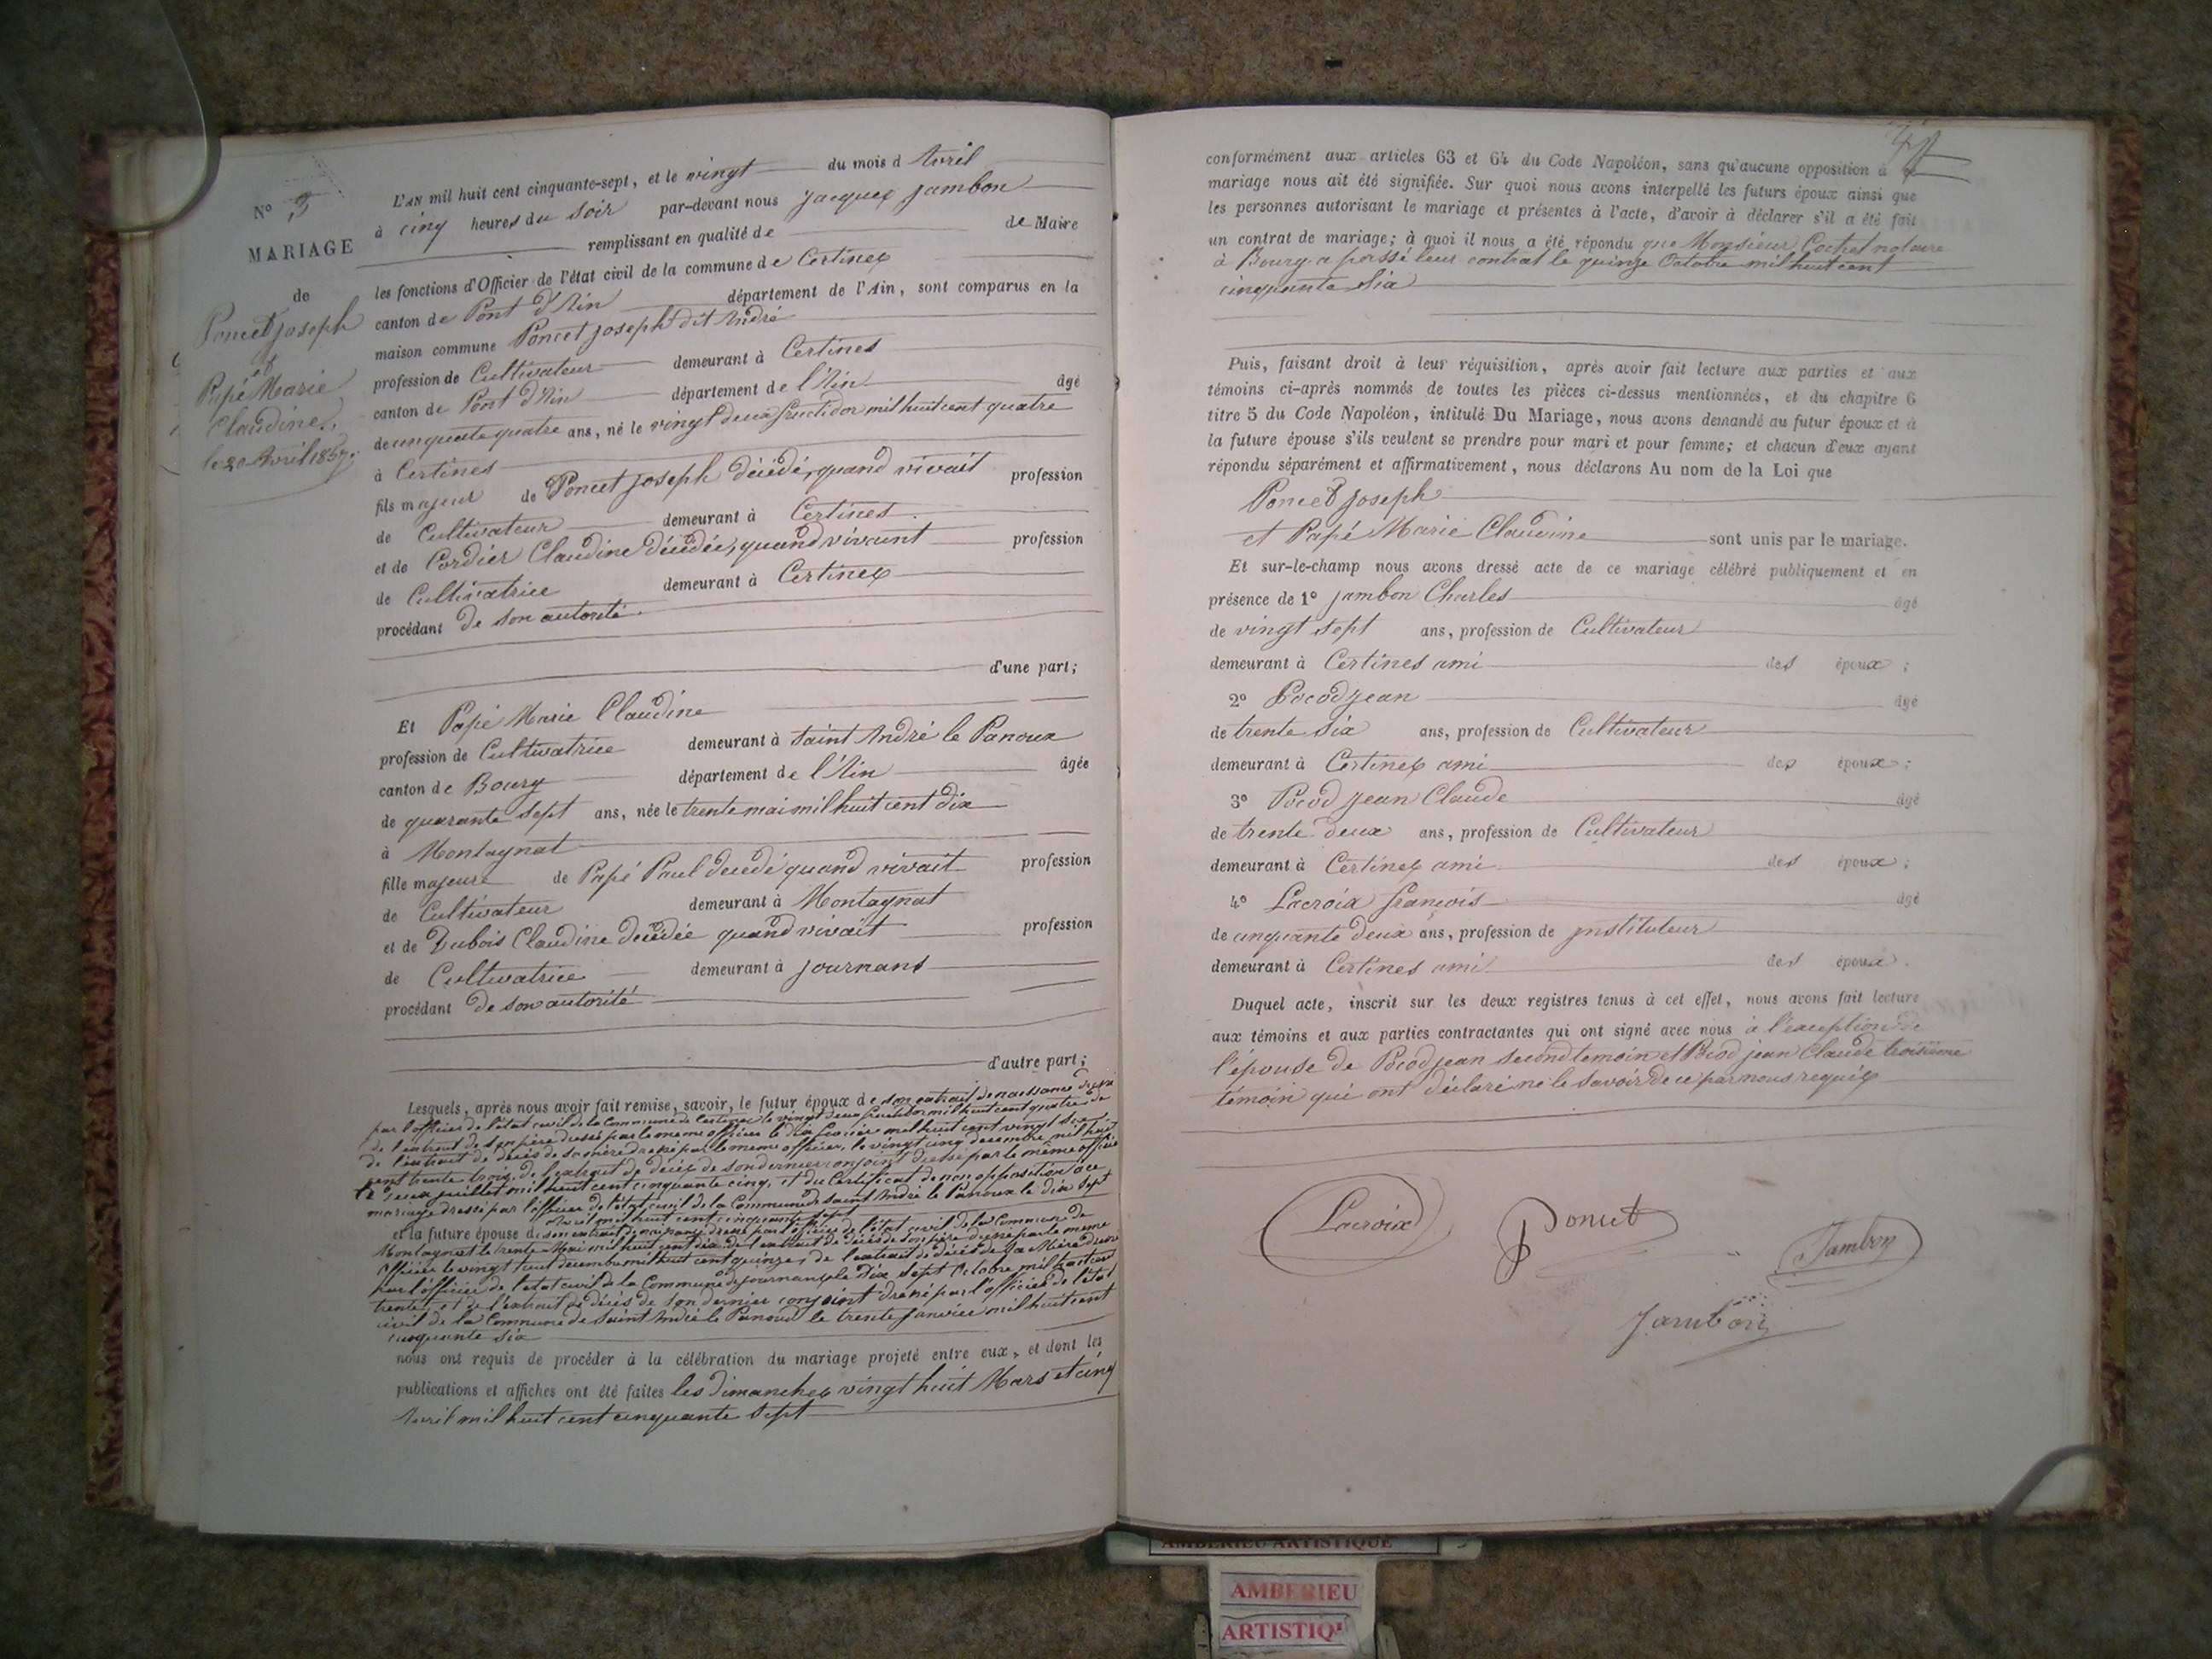 N° 3
MARIAGE
de
Poncet Joseph
et
Papé Marie
Claudine,
le 20 Avril 1857.
L'AN mil huit cent cinquante-sept, et le vingt du mois d Avril
à cinq heures du soir par-devant nous Jacques Jambon
remplissant en qualité de de Maire
les fonctions d'Officier de l'état civil de la commune de Certines
canton de Pont d'Ain département de l'Ain, sont comparus en la
maison commune Poncet Joseph dit André
profession de Cultivateur demeurant à Certines
canton de Pont d'Ain département de l'Ain âgé
de cinquante quatre ans, né le vingt deux fructidor mil huit cent quatre
à Certines
fils majeur de Poncet Joseph décédé, quand vivait profession
de Cultivateur demeurant à Certines.
et de Cordier Claudine décédée, quand vivant profession
de Cultivatrice demeurant à Certines
procédant de son autorité.
d'une part;
Et Papé Marie Claudine
profession de Cultivatrice demeurant à Saint André le Panoux
canton de Bourg département de l'Ain âgée
de quarante sept ans, née le trente mai mil huit cent dix
à Montagnat
fille majeure de Papé Paul décédé quand vivait profession
de Cultivateur demeurant à Montagnat
et de Dubois Claudine décédée quand vivait profession
de Cultivatrice demeurant à Journans
procédant de son autorité
d'autre part;
Lesquels, après nous avoir fait remise, savoir, le futur époux de son extrait de naissance dressé
par l'officier de l'état civil de la Commune de Certines le vingt deux fructidor mil huit cent quatre de
de l'extrait de son père dressé par le même officier le dix janvier mil huit cent vingt
de l'extrait de décès de sa mère dressé par le même officier, le vingt cinq décembre mil huit
cent trente trois, de l'extrait de décès de son dernier conjoint dressé par le même officier
le deux juillet mil huit cent cinquante cinq, et du Certificat de non opposition à ce
mariage dressé par l'officier de l'état civil de la Commune de Saint André le Panoux le dix sept
Avril mil huit cent cinquante sept
et la future épouse de son extrait de naissance dressé par l'officier de l'état civil de la Commune de
Montagnat le trente Mai mil huit cent dix de l'extrait de décès de son père dressé par le même
officier le vingt huit décembre mil huit cent quinze, de l'extrait de décès de sa Mère dressé
par l'officier de l'état civil de la Commune de Journans le Dix sept Octobre mil huit cent
trente, et de l'extrait de décès de son dernier conjoint dressé par l'officier de l'état
civil de la Commune de Saint André le Panoux le trente Janvier mil huit cent
cinquante six
nous ont requis de procéder à la célébration du mariage projeté entre eux, et dont les
publications et affiches ont été faites les dimanches vingt huit Mars et cinq
Avril mil huit cent cinquante sept
conformément aux articles 63 et 64 du Code Napoléon, sans qu'aucune opposition à ce
mariage nous ait été signifiée. Sur quoi nous avons interpellé les futurs époux ainsi que
les personnes autorisant le mariage et présentes à l'acte, d'avoir à déclarer s'il a été fait
un contrat de mariage; à quoi il nous a été répondu que Monsieur notaire
à Bourg a passé leur contrat le quinze Octobre mil huit cent
cinquante six
Puis, faisant droit à leur réquisition, après avoir fait lecture aux parties et aux
témoins ci-après nommés de toutes les pièces ci-dessus mentionnées, et du chapitre 6
titre 5 du Code Napoléon, intitulé Du Mariage, nous avons demandé au futur époux et à
la future épouse s'ils veulent se prendre pour mari et pour femme; et chacun d'eux ayant
répondu séparément et affirmativement, nous déclarons Au nom de la Loi que
Poncet Joseph
et Papé Marie Claudine sont unis par le mariage.
Et sur-le-champ nous avons dressé acte de ce mariage célébré publiquement et en
présence de 1° Jambon Charles âgé
de vingt sept ans, profession de Cultivateur
demeurant à Certines ami des époux;
2° Pocod Jean âgé
de trente six ans, profession de Cultivateur
demeurant à Certines ami des époux;
3° Pocod Jean Claude âgé
de trente deux ans, profession de Cultivateur
demeurant à Certines ami des époux;
4° Lacroix François âgé
de cinquante deux ans, profession de instituteur
demeurant à Certines ami des époux.
Duquel acte, inscrit sur les deux registres tenus à cet effet, nous avons fait lecture
aux témoins et aux parties contractantes qui ont signé avec nous à l'exception de
l'épouse de Pocod Jean second temoin et Pocod Jean Claude troisième
témoin qui ont déclaré ne le savoir de ce par nous requis
Lacroix Poncet Jambon
Jambon
AMBERIEU ARTISTIQUE
AMBERIEU
ARTISTIQ